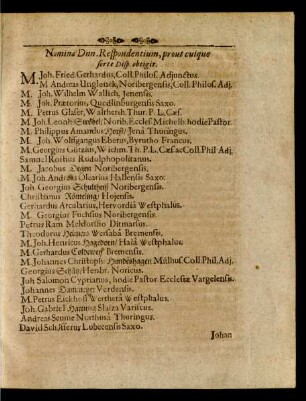 Nomina Dnn. Respondentium, prout cuique
sorte Disp. obtigit.
M. Joh. Fried. Gerhardus, Coll. Philos. Adjunctus.
M. Andreas Unglenck, Noribergensis, Coll. Philos. Adj.
M. Joh. Wilhelm Wallich, Jenensis.
M. Joh. Prætorius, Quedlinburgensis Saxo.
M. Petrus Glaser, Walthersh. Thur. P. L. Cæs.
M. Joh. Leonh. Norib. Eccles. hodie Pastor.
M. Philippus Amandus Jenâ Thuringus.
M. Joh. Wolfgangus Eberus, Byrutho Francus.
M. Georgius Götzius, Wichm. Th. P. L. Cæs. ac Coll. Phil. Adj.
Samuel Rosthius Rudolphopolitanus.
M. Jacobus Noribergensis.
M. Joh. Andreas Olearius Hallensis Saxo.
Joh. Georgius Schultheiß Noribergensis.
Christianus Hojensis.
Gerhardus Arcularius, Hervordiâ Westphalus.
M. Georgius Fuchsius Noribergensis.
Petrus Ram Meldorffio Ditmarsus.
Theodorus Wersabâ Bremensis.
M. Joh. Henricus Hagedorn Halâ Westphalus.
M. Gerhardus Bremensis.
M. Johannes Christoph. Hundeshagen Mülhus. Coll. Phil. Adj.
Georgius Henbr. Noricus.
Joh. Salomon Cyprianus, hodie Pastor Ecclesiæ Vargelensis.
Johannes Verdensis.
M. Petrus Eickholt Wertherâ Westphalus.
Joh. Gabriel Slaiza Variscus.
Andreas Seume Northusâ Thuringus.
David Lubecensis Saxo.
Johan